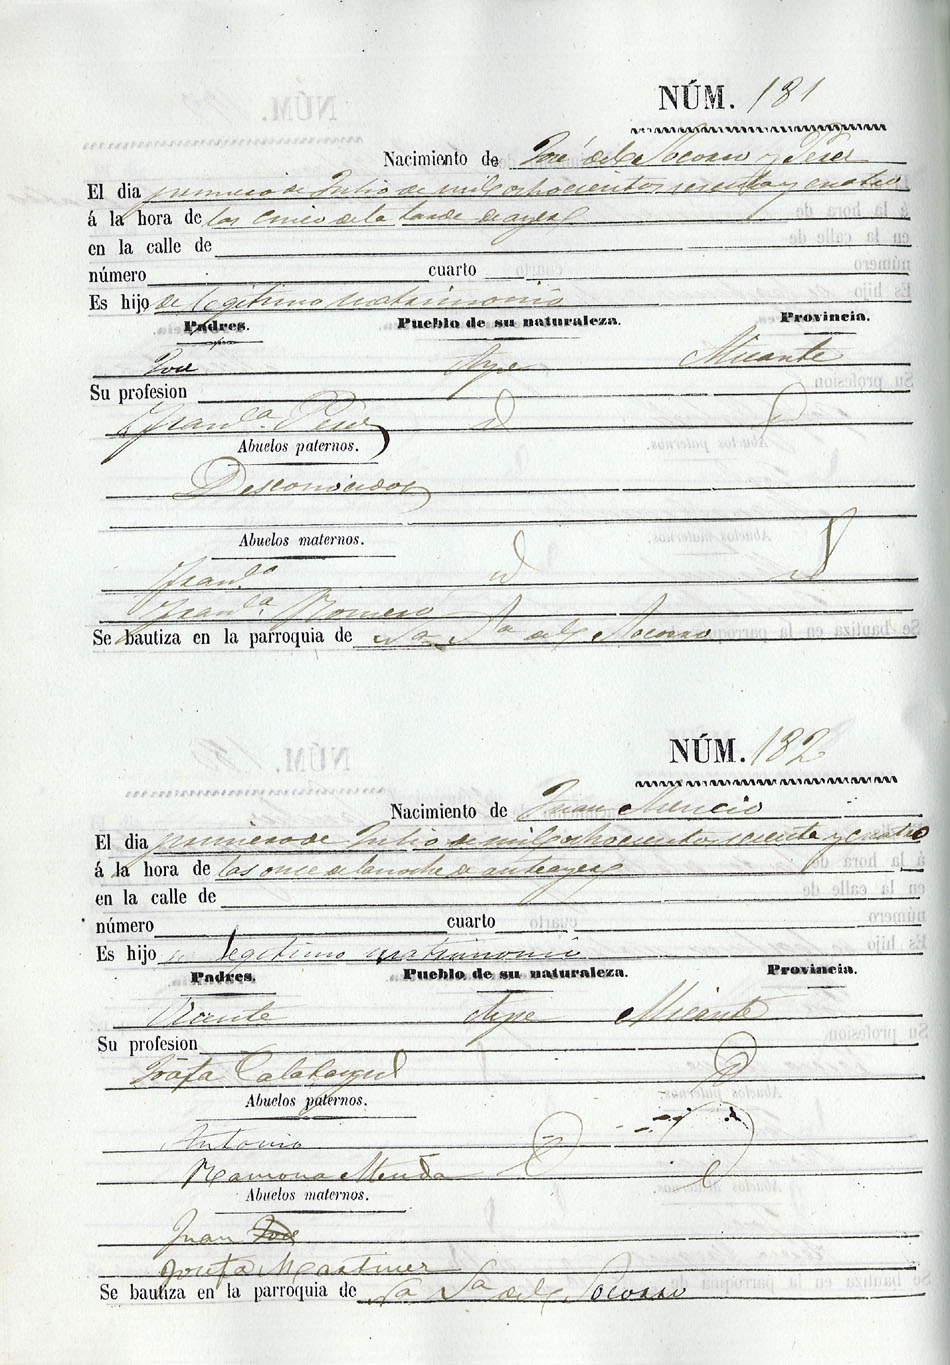 NÚM. 181
Nacimiento de José del Socorro y Perez
El dia primero de Julio de mil ochocientos sesenta y cuatro
á la hora de las cinco de la tarde de ayer
en la calle de
número cuarto
Es hijo de legitimo matrimonio
Padres. Pueblo de su naturaleza. Provincia.
José Aspe Alicante
Su profesion
Fran.ca Perez id
Abuelos paternos.
Desconocidos
Abuelos maternos.
Fran.co id id
Fran.ca Romero
Se bautiza en la parroquia de Na Sa del Socorro
NÚM. 182
Nacimiento de Juan Asencio
El dia primero de Julio de mil ochocientos sesenta y cuatro
á la hora de las once de la noche de anteayer
en la calle de
número cuarto
Es hijo legitimo matrimonio
Padres. Pueblo de su naturaleza. Provincia.
Vicente Aspe Alicante
Su profesion
Calatayud
Abuelos paternos.
Antonio
Ramona
Abuelos maternos.
Juan José
Josefa Martinez
Se bautiza en la parroquia de Na Sa del Socorro